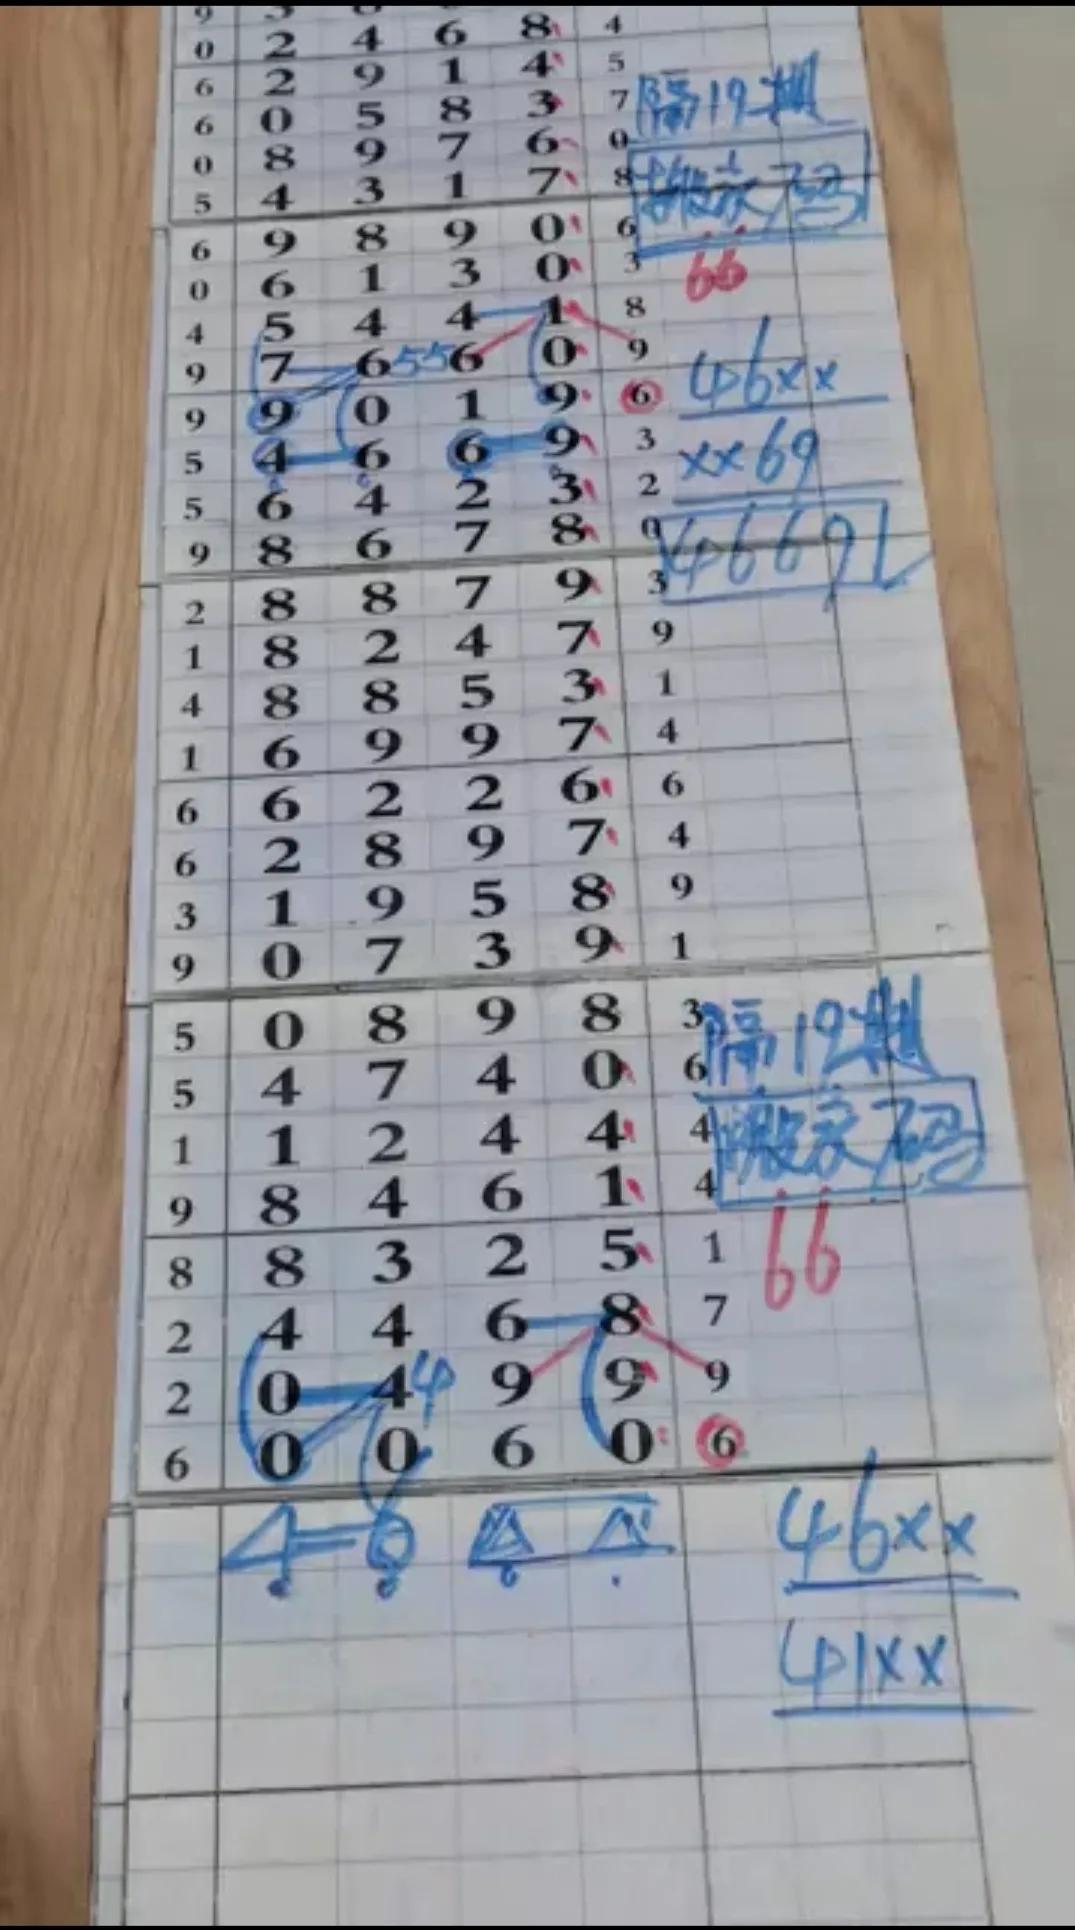 0 2 4 6 8 4
6 2 9 1 4 5
6 0 5 8 3 7
隔19期
0 8 9 7 6 0
5 4 3 1 7 8
6 9 8 9 0 6
66
0 6 1 3 0 3
4 5 4 4 1 8
9 7 6 55 6 0 9
46xx
9 9 0 1 9 6
5 4 6 6 9 3
xx69
5 6 4 2 3 2
9 8 6 7 8 0
4669
2 8 8 7 9 3
1 8 2 4 7 9
4 8 8 5 3 1
1 6 9 9 7 4
6 6 2 2 6 6
6 2 8 9 7 4
3 1 9 5 8 9
9 0 7 3 9 1
5 0 8 9 8 3
隔19期
5 4 7 4 0 6
1 1 2 4 4 4
9 8 4 6 1 4
8 8 3 2 5 1
66
2 4 4 6 8 7
2 0 4 4 9 9 9
6 0 0 6 0 6
4 6
46xx
41xx